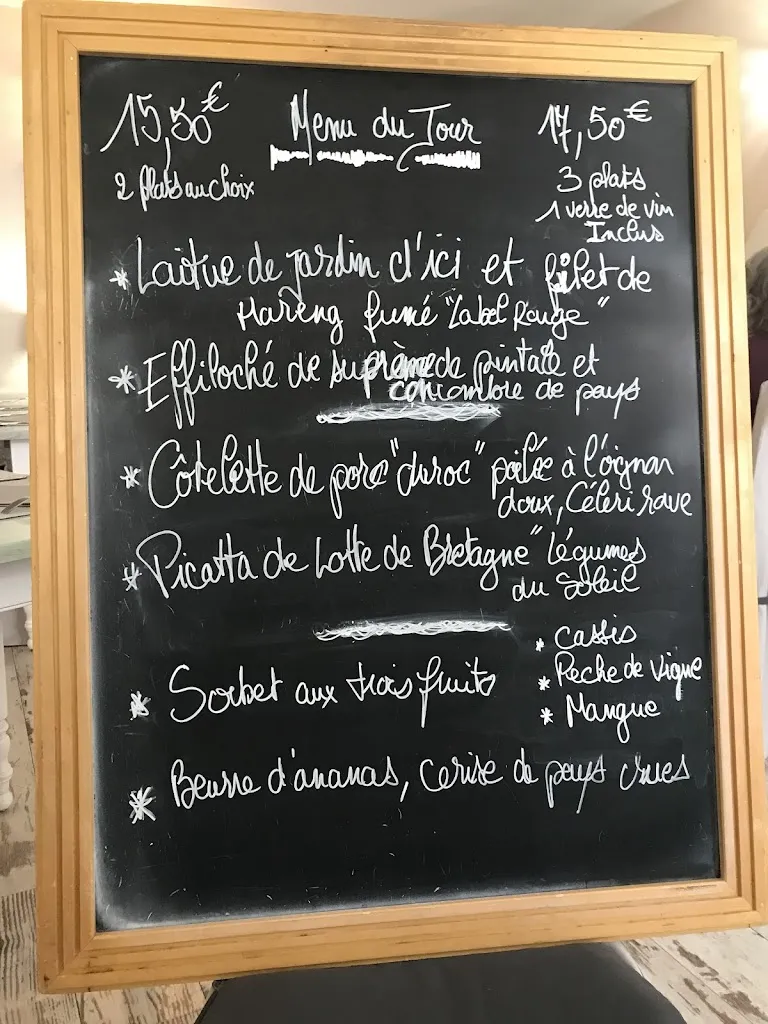 15,50€
Menu du Tour
17,50€
2 plats au choix
3 plats
1 verre de vin
Inclus
* Laitue de jardin d'ici et filet de
Hareng fumé "Label Rouge"
* Effiloché de suprème de pintade et
concombre de pays
* Côtelette de porc "duroc" poêlée à l'oignon
doux, Céleri rave
* Picatta de Lotte de Bretagne" Légumes
du Soleil
* Sorbet aux trois fruits
* cassis
* Peche de Vigne
* Mangue
* d'ananas, Cerise de pays crues